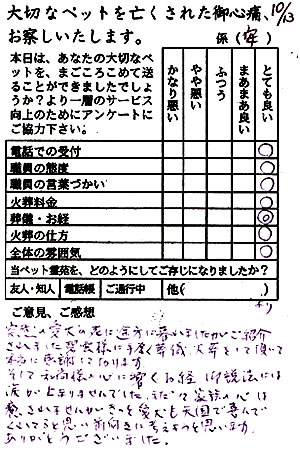 大切なペットを亡くされた御心痛、
お察しいたします。
10/13
係(
本日は、あなたの大切なペ
ットを、まごころこめて送
ることができましたでしょ
うか?より一層のサービス
向上のためにアンケートに
ご協力下さい。
かなり悪い
やや悪い
ふつう
まあまあ良い
とても良い
電話での受付 ○
職員の態度 ○
職員の言葉づかい ○
火葬料金 ○
葬儀・お経 ◎
火葬の仕方 ○
全体の雰囲気 ○
当ペット霊苑を、どのようにしてご存じになりましたか?
友人・知人 電話帳 ご通行中 他(
ご意見、ご感想
突然の愛犬の死に途方に暮れましたがご紹介
されました霊苑様に手厚く葬儀、火葬をして頂いて
本当に感謝しております
そして和尚様の心に響くお経、御説法には
涙が止まりませんでした。まだまだ家族の心は
癒されませんがきっと愛犬も天国で喜んで
くれてると思い前向きに考えようと思います。
ありがとうございました。